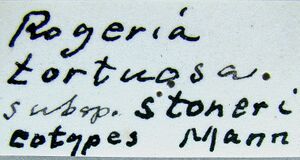 Rogeria
tortuosa.
subsp. stoneri
cotypes Mann